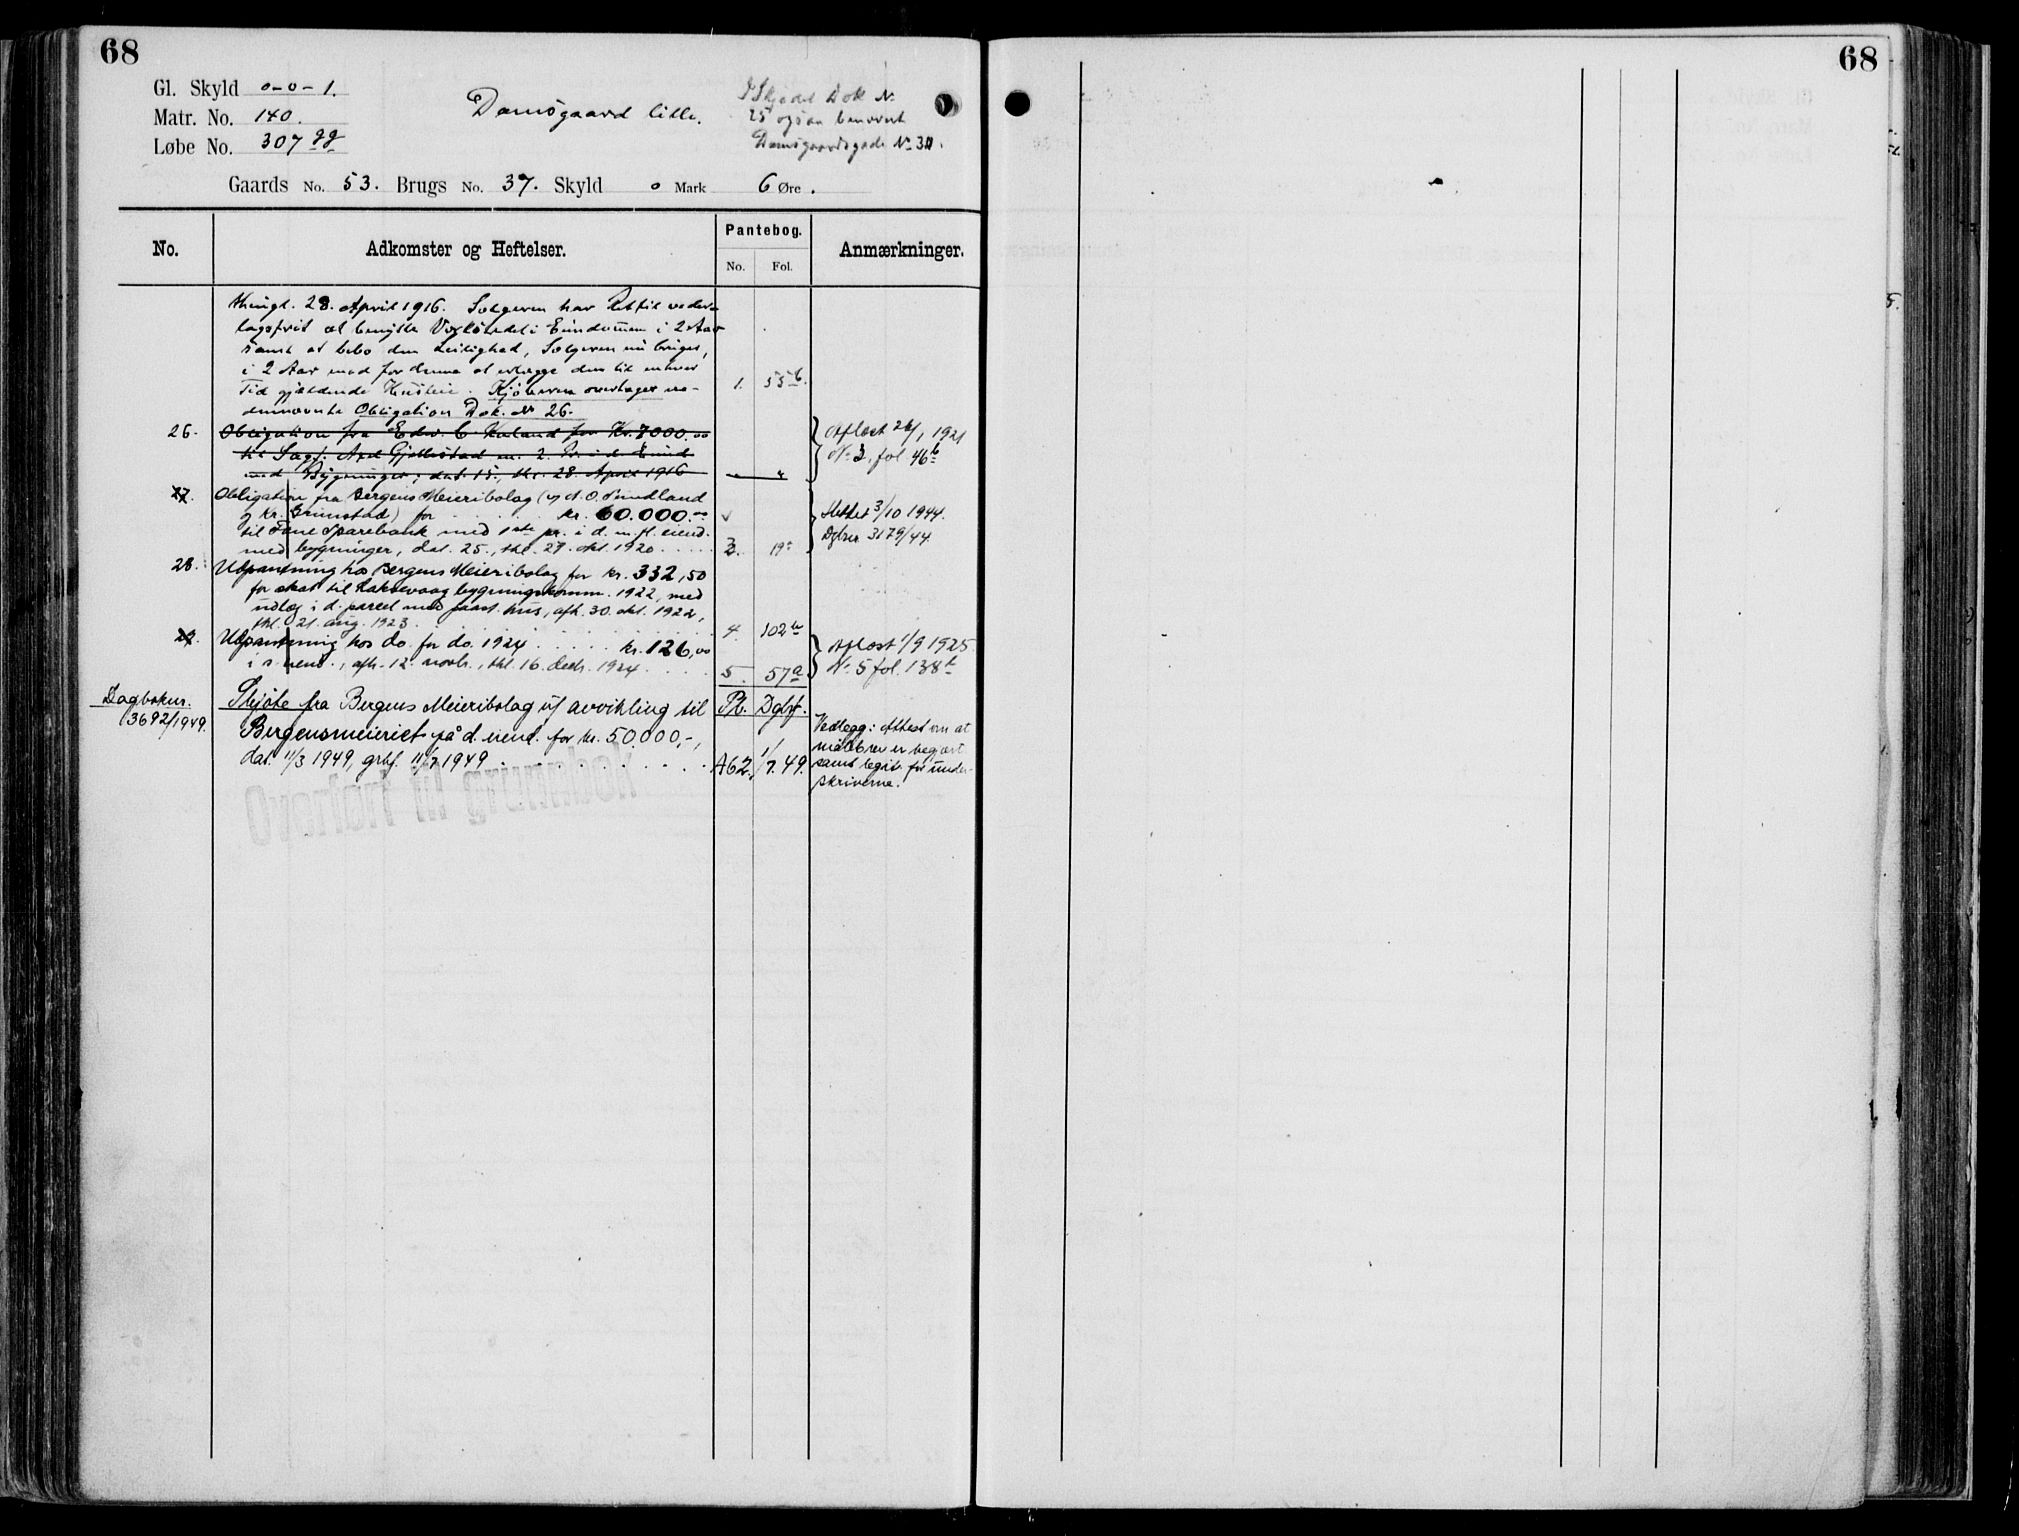 68
68
Gl. Skyld 0-0-1.
Matr. No. 140.
Løbe No. 307 gg
Damsgaard lille.
I Skjødet Dok №
25 ogsaa benævnt
Damsgaardsgade № 30.
Gaards No. 53. Brugs No. 37. Skyld 0 Mark 6 Øre.
No.
Adkomster og Heftelser.
Pantebog.
No. Fol.
Anmærkninger.
thingl. 28. April 1916. Sælgeren har Ret til veder-
lagsfrit at benytte i Eiendommen i 2 Aar
samt at bebo den Leilighed, Sælgeren nu bruger,
i 2 Aar mod for denne at erlægge den til enhver
Tid gjældende Husleie. Kjøberen overtager ne-
dennævnte Obligation Dok. № 26.
1. 55 b.
26. Obligation fra Edv. C. for Kr. 7000.00
til Sagf. Axel Gjellestad m. 2. Pr. i d. Eiend
med Bygninger, dat. 15., thl. 28. April 1916
" "
Aflæst 26/1 1921
№ 3, fol 46 b
27. Obligation fra Bergens Meieribolag (v/ A. O. Sundland
og Kr. Grimstad) for kr. 60.000.00
til Fane Sparebank med 1ste pr. i d. m. fl. eiend.
med bygninger, dat. 25., thl. 27. okt. 1920
19
Slettet 3/10 1944.
Dgbnr. 3179/44.
28. Utpantning hos Bergens Meieribolag for kr. 332,50
for skat til Laksevaag bygningskomm. 1922, med
udlæg i d. parcel med paast. hus, afh. 30. okt. 1922,
thl. 21. aug. 1923
4. 102
29. Utpantning hos do. for do. 1924 kr. 126,00
i s. eiend., afh. 12. novbr., thl. 16. decbr. 1924
5. 57 a
Aflæst 1/9 1925.
№ 5 fol. 138
Dagboknr.
3692/1949.
Skjøte fra Bergens Meieribolag u/ avvikling til
Bergensmeieriet på d. eiend. for kr. 50.000,-,
dat. 11/3 1949, grbf. 11/7 1949
Pb. Dgbf.
A62 1/7. 49.
Vedlegg: Attest om at
målebrev er begjært
samt legit. for under-
skriverne.
Overført til grunnbok